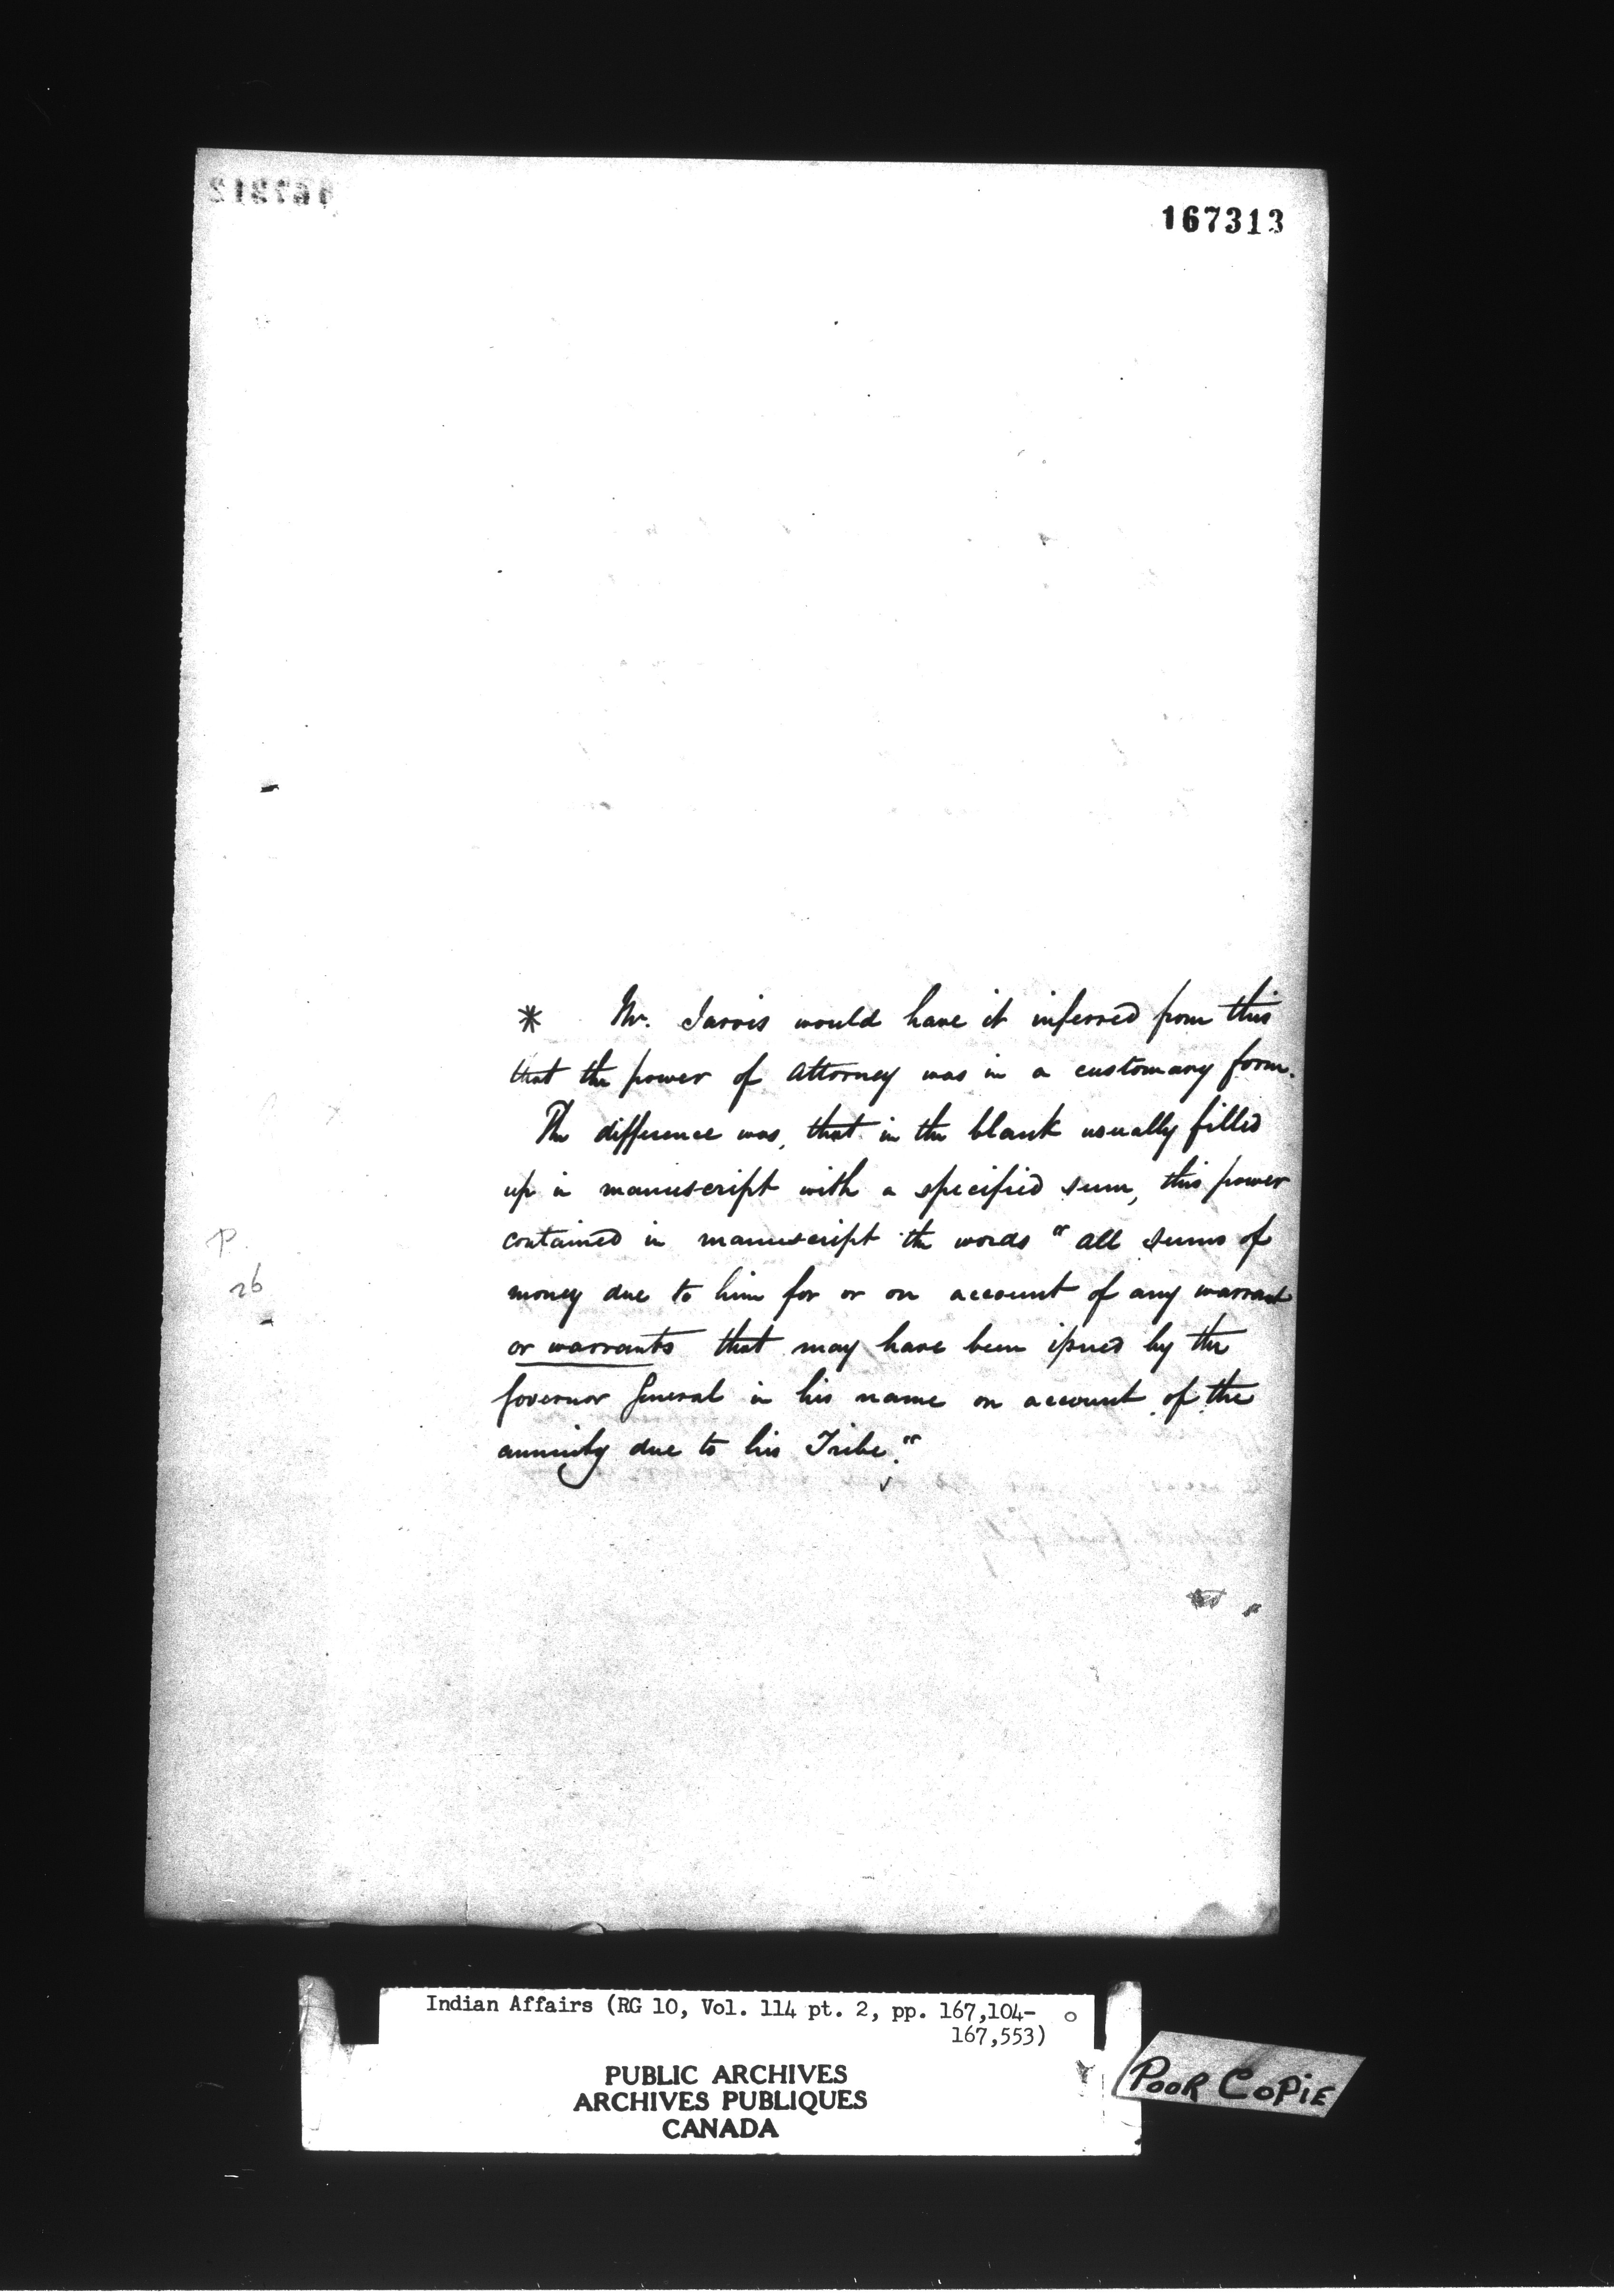 167313
* Mr. Jarvis would have it inferred from this
that the power of attorney was in a customary form.
The difference was, that in the blank usually filled
up in manuscript with a specified sum, this power
contained in manuscript the words "all sums of
money due to him for or on account of any warrant
or warrants that may have been issued by the
Governor General in his name on account of the
annuity due to his Tribe."
P.
26
Indian Affairs (RG 10, Vol. 114 pt. 2, pp. 167,104-
167,553)
PUBLIC ARCHIVES
ARCHIVES PUBLIQUES
CANADA
POOR COPIE